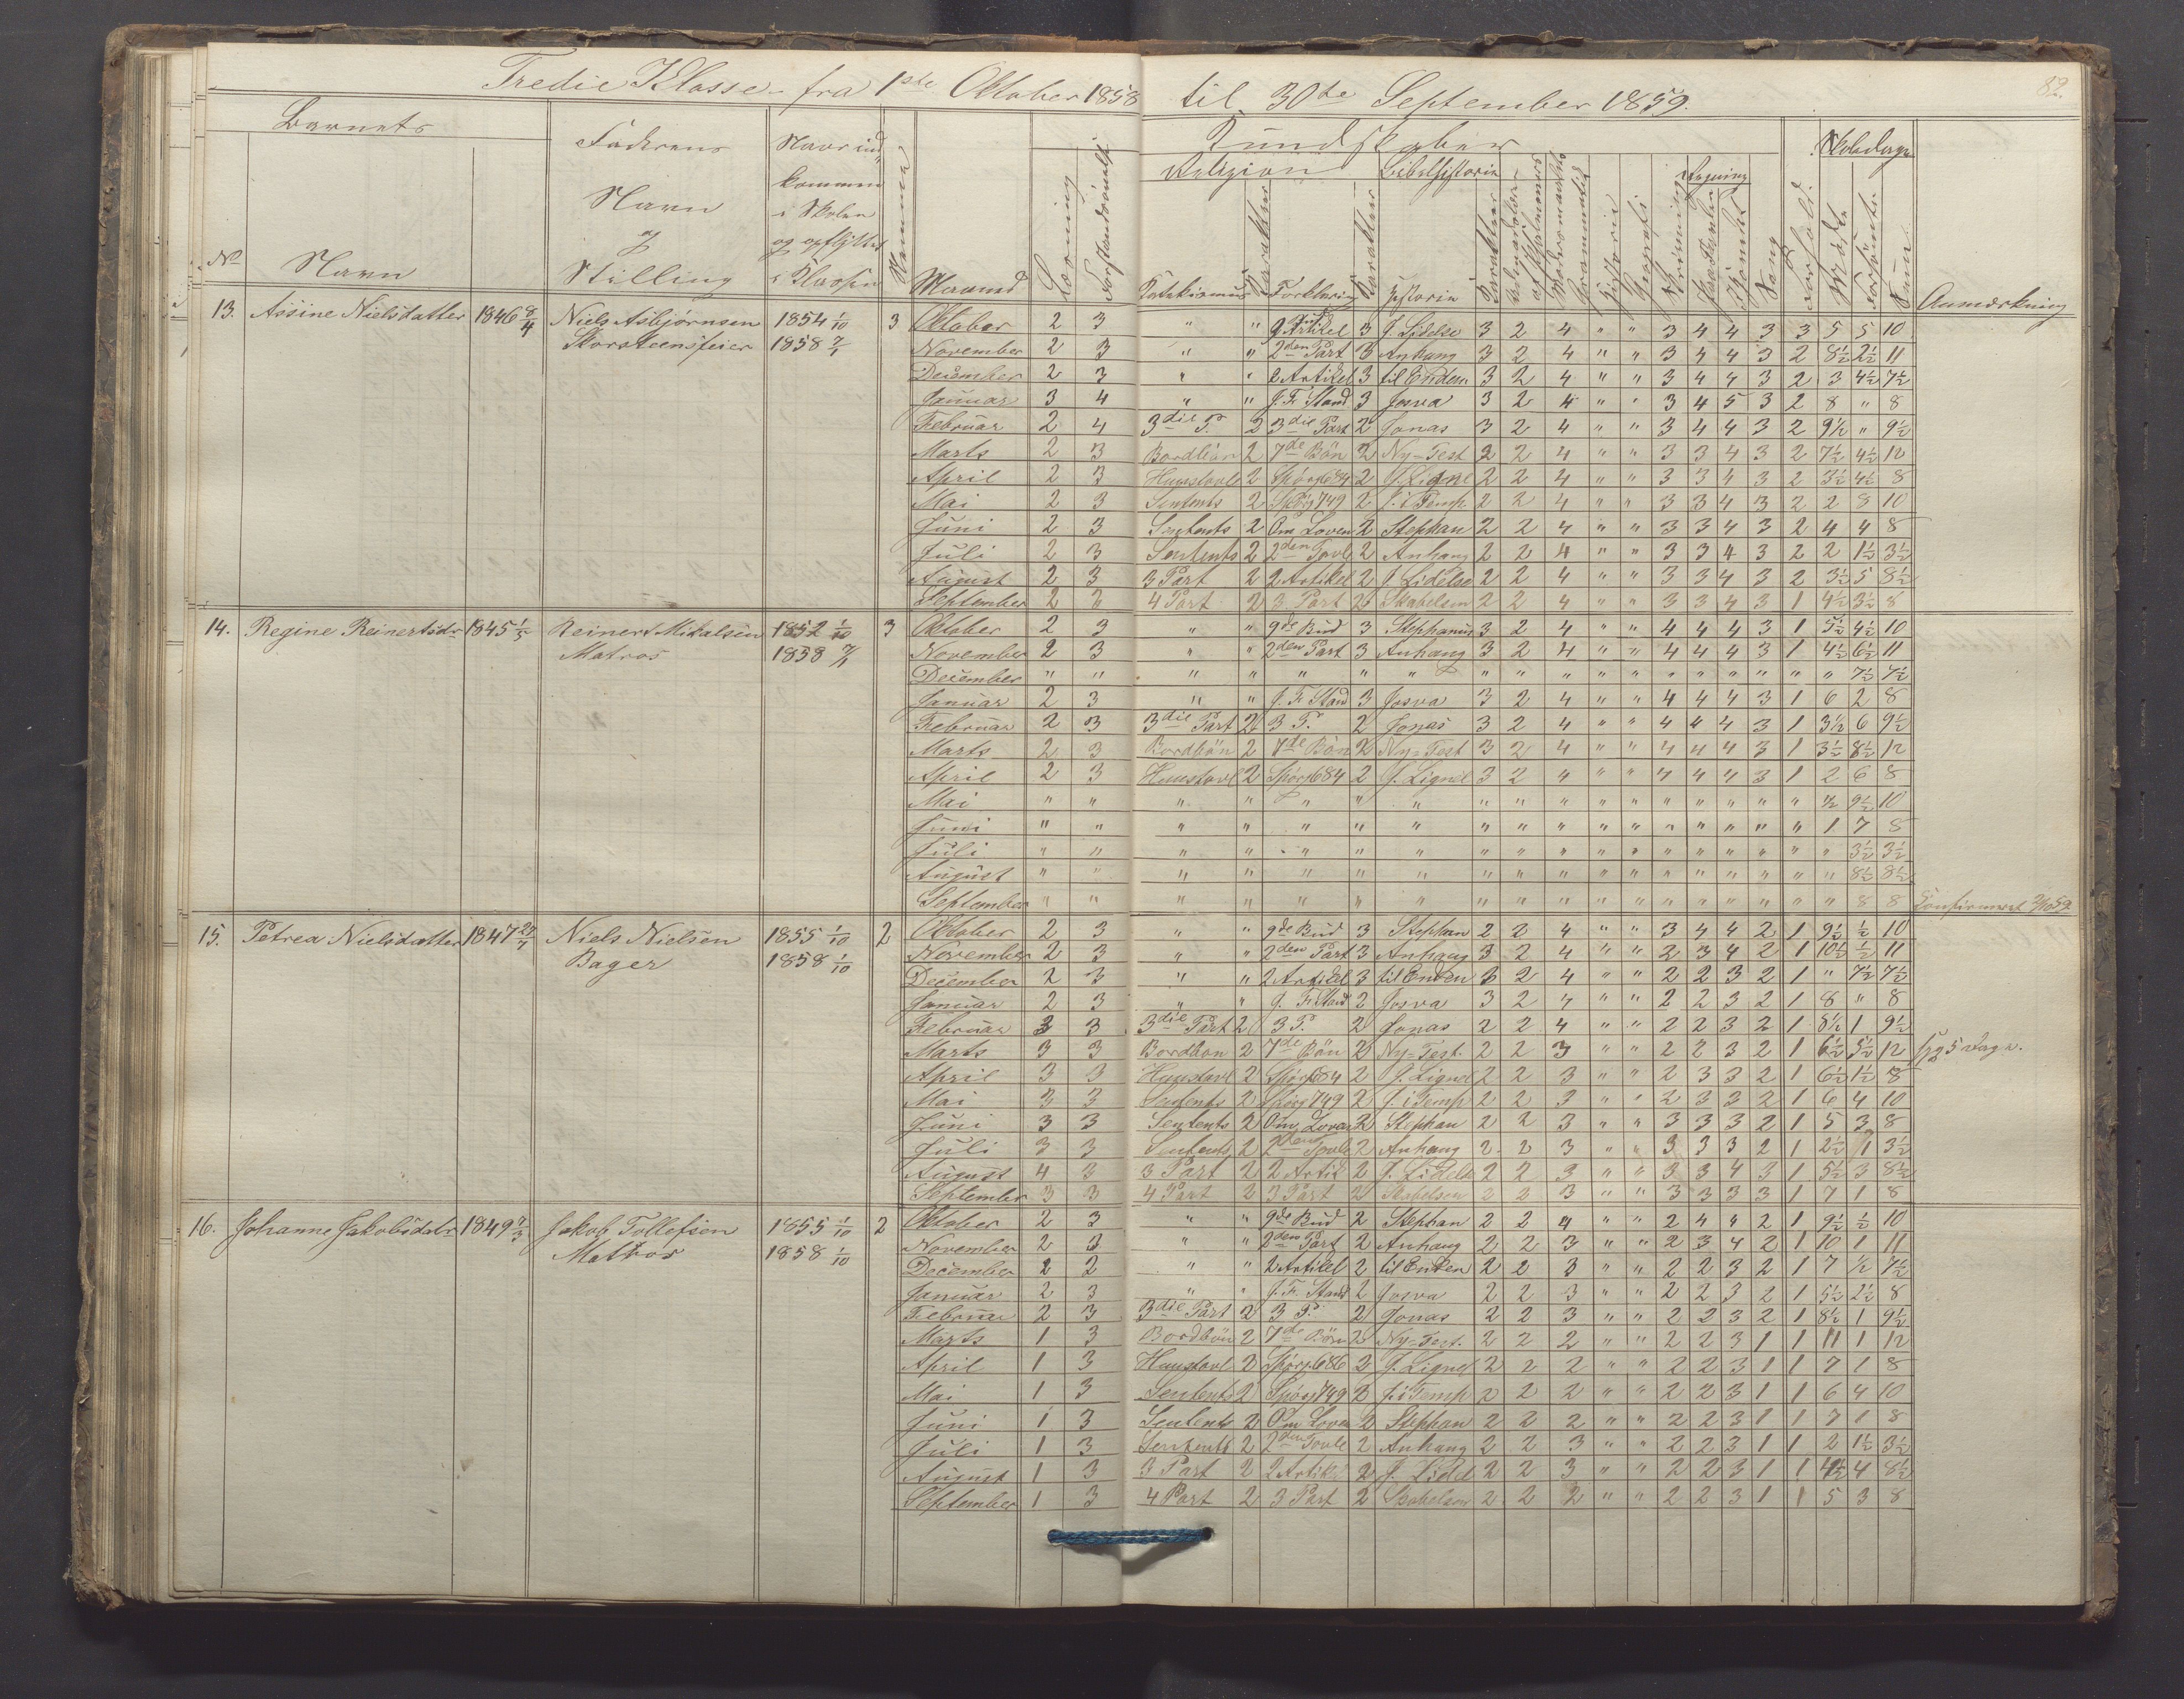 Tredie Klasse fra 1ste Oktober 1858 til 30te September 1859.
82.
Barnets Faderens Naar ind Kundskaber Skoledage
kommen Religion Bibelhistorie Regning
Navn i Skolen
og og opflyttet
No Navn Stilling i Klassen Maaned Læsning Katekismus Karakter Forklaring Karakter Historie Karakter Historie Sang Sum Anmærkning
13. Assine Nielsdatter 1846 8/4 Niels Asbjørnsen 1854 1/10 3 Oktober 2 3 " " 9de Bud Artikel 3 J. Lidelse 3 2 4 " " 3 4 4 3 3 5 5 10
Skorsteensfeier 1858 7/1 November 2 3 " " 2den Part 3 Anhang 3 2 4 " " 3 4 4 3 2 8½ 2½ 11
December 2 3 " " 2 Artikel 3 til Enden 3 2 4 " " 3 4 4 3 2 3 4½ 7½
Januar 3 4 " " J. Fr. Stand 3 Josva 3 2 4 " " 3 4 5 3 2 8 " 8
Februar 2 4 3die P. 2 3die Part 2 Jonas 3 2 4 " " 3 4 4 3 2 9½ " 9½
Marts 2 3 Bordbön 2 7de Bön 2 Ny-Test 2 2 4 " " 3 3 4 3 2 7½ 4½ 12
April 2 3 Huustavl 2 Spörs 684 2 J. Lignel 2 2 4 " " 3 3 4 3 2 3½ 4½ 8
Mai 2 3 Sentents 2 Spörs 749 2 J. i Temp 2 2 4 " " 3 3 4 3 2 2 8 10
Juni 2 3 Sentents 2 Om Loven 2 Stephan 2 2 4 " " 3 3 4 3 2 4 4 8
Juli 2 3 Sentents 2 2den Tavle 2 Anhang 2 2 4 " " 3 3 4 3 2 2 1½ 3½
August 2 3 3 Part 2 2 Artikel 2 J. Lidelse 2 2 4 " " 3 3 4 3 2 3½ 5 8½
September 2 2 4 Part 2 3 Part 2 Skabelsen 2 2 4 " " 3 3 4 3 1 4½ 3½ 8
14. Regine Reinertsdr 1845 1/5 Reinert Mikalsen 1852 1/10 3 Oktober 2 3 " " 9de Bud 3 Stephanus 3 2 4 " " 4 4 4 3 1 5½ 4½ 10
Matros 1858 7/1 November 2 3 " " 2den Part 3 Anhang 3 2 4 " " 4 4 4 3 1 4½ 6½ 11
December " " " " " " " " " " " " " " " " " " 7½ 7½
Januar 2 3 " " J. Fr. Stand 3 Josva 3 2 4 " " 4 4 4 3 1 6 2 8
Februar 2 3 3die Part 2 3 P. 2 Jonas 3 2 4 " " 4 4 4 3 1 3½ 6 9½
Marts 2 3 Bordbön 2 7de Bön 2 Ny-Test 3 2 4 " " 4 4 4 3 1 3½ 8½ 12
April 2 3 Huustavl 2 Spörs 684 2 J. Lignel 3 2 4 " " 4 4 4 3 1 2 6 8
Mai " " " " " " " " " " " " " " " " " ½ 9½ 10
Juni " " " " " " " " " " " " " " " " " 1 7 8
Juli " " " " " " " " " " " " " " " " " " 3½ 3½
August " " " " " " " " " " " " " " " " " " 8½ 8½
September " " " " " " " " " " " " " " " " " " 8 8 Confirmeret 2/10 59
15. Petrea Nielsdatter 1847 Niels Nielsen 1855 1/10 2 Oktober 2 3 " " 9de Bud 3 Stephan 2 2 4 " " 3 4 4 2 1 9½ ½ 10
Bager 1858 1/10 November 2 3 " " 2den Part 3 Anhang 3 2 4 " " 2 3 4 2 1 10½ ½ 11
December 2 3 " " 2 Artikel 3 til Enden 3 2 4 " " 2 2 3 2 1 " 7½ 7½
Januar 2 3 " " J. Fr. Stand 2 Josva 3 2 4 " " 2 2 3 2 1 8 " 8
Februar 3 3 3die Part 2 3 P. 2 Jonas 2 2 4 " " 2 2 3 2 1 8½ 1 9½
Marts 3 3 Bordbon 2 7de Bön 2 Ny-Test. 2 2 3 " " 2 2 3 2 1 6½ 5½ 12 syg 5 Dage.
April 3 3 Huustavl 2 Spörs 684 2 J. Lignel 2 2 3 " " 2 3 3 2 1 6½ 1½ 8
Mai 3 3 Sentents 2 Spörs 749 2 J. i Temp 2 2 3 " " 2 3 3 2 1 6 4 10
Juni 3 3 Sentents 2 Om Loven 2 Stephan 2 2 3 " " 3 3 3 2 1 5 3 8
Juli 3 3 Sentents 2 2den Tavle 2 Anhang 2 2 3 " " 3 3 3 2 1 2½ 1 3½
August 4 3 3 Part 2 2 Artik 2 J. Lidels 2 2 3 " " 3 3 4 3 1 5½ 3 8½
September 3 3 4 Part 2 3 Part 2 Skabelsen 2 2 3 " " 3 3 3 3 1 7 1 8
16. Johanne Jakobsdatr 1849 Jakob Tollefsen 1855 1/10 2 Oktober 2 3 " " 9de Bud 2 Stephan 2 2 4 " " 2 4 4 2 1 9½ ½ 10
Matros 1858 1/10 November 2 3 " " 2den Part 2 Anhang 2 2 3 " " 2 3 4 2 1 10 1 11
December 2 2 " " 2 Artikel 2 til Enden 2 2 3 " " 2 2 3 2 1 7 ½ 7½
Januar 2 3 " " J. Fr. Stand 2 Josva 2 2 3 " " 2 2 3 2 1 5½ 2½ 8
Februar 2 3 3die Part 2 3 P. 2 Jonas 2 2 3 " " 2 2 3 2 1 8½ 1 9½
Marts 1 3 Bordbön 2 7de Bön 2 Ny-Test. 2 2 2 " " 2 2 3 1 1 11 1 12
April 1 3 Huustavl 2 Spörs. 686 2 J. Lignel 2 2 2 " " 2 2 3 1 1 7 1 8
Mai 1 3 Sentents 2 Spörs 749 2 J. i Temp 2 2 2 " " 2 2 3 1 1 6 4 10
Juni 1 3 Sentents 2 Om Loven 2 Stephan 2 2 2 " " 2 2 3 1 1 7 1 8
Juli 1 3 Sentents 2 2den Tavle 2 Anhang 2 2 3 " " 2 2 3 1 1 2 1½ 3½
August 1 3 3 Part 2 2 Artik 2 J. Lidel 2 2 3 " " 2 2 3 1 1 4½ 4 8½
September 1 3 4 Part 2 3 Part 2 Skabelsen 2 2 2 " " 2 2 3 1 1 5 3 8